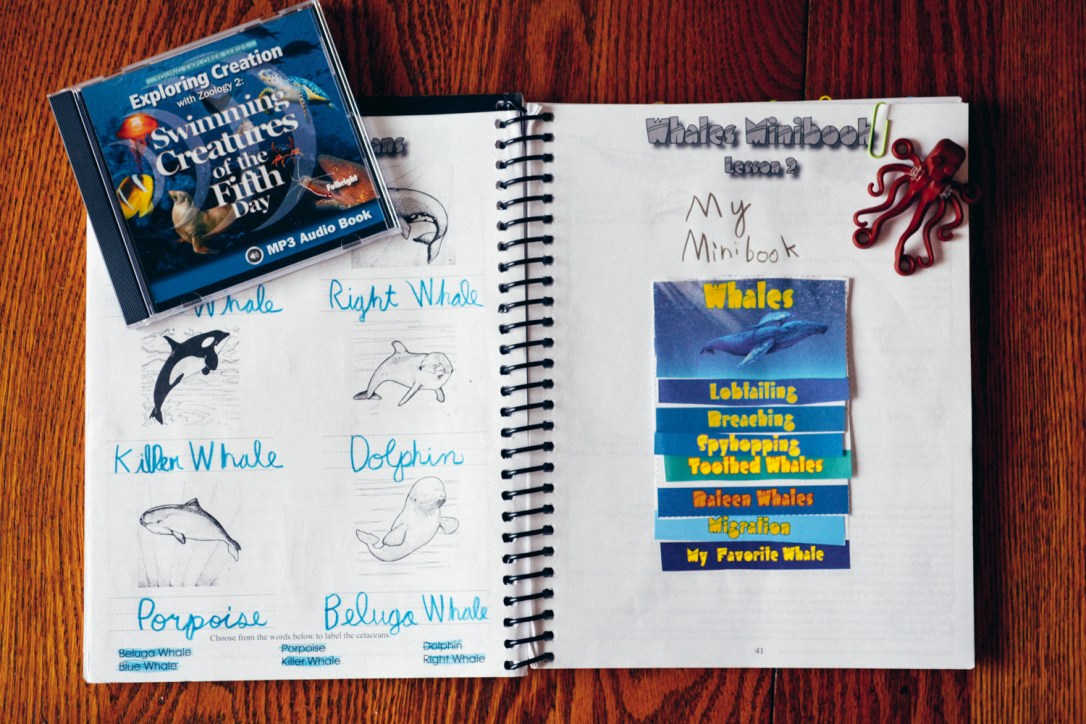 Exploring Creation
with Zoology 2:
Swimming
Creatures
of the
Fifth
Day
Fulbright
MP3 Audio Book
Whale
Right Whale
Killer Whale
Dolphin
Porpoise
Beluga Whale
Choose from the words below to label the cetaceans.
Beluga Whale
Porpoise
Dolphin
Blue Whale
Killer Whale
Right Whale
Whales Minibook
Lesson 2
My
Minibook
Whales
Lobtailing
Breaching
Spyhopping
Toothed Whales
Baleen Whales
Migration
My Favorite Whale
41